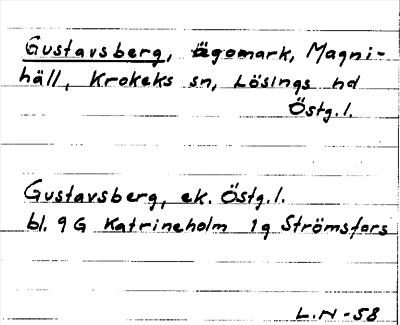 Gustavsberg, ägomark, Magni-
häll, Krokeks sn, Lösings hd
Östg.l.
Gustavsberg, ek. Östg.l.
bl. 9 G Katrineholm 1g Strömsfors
L.N-58